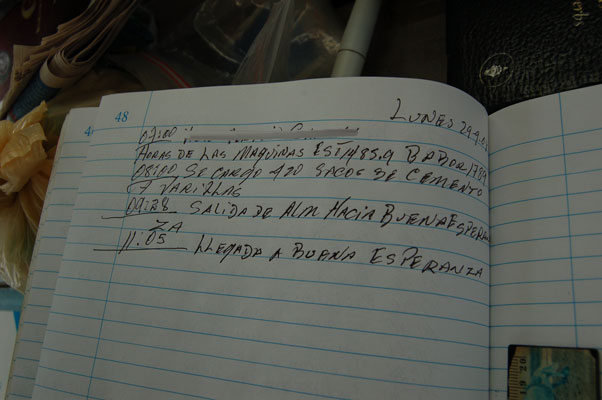 48
LUNES 29-9-
07:00
HORAS DE LAS MAQUINAS EST 1485.9 BABOR 1789
08:00 SE CARGO 420 SACOS DE CEMENTO
7 VARILLAS
09:28 SALIDA DE ALM HACIA BUENA ESPERAN
ZA
11:05 LLEGADA A BUENA ESPERANZA
19 20